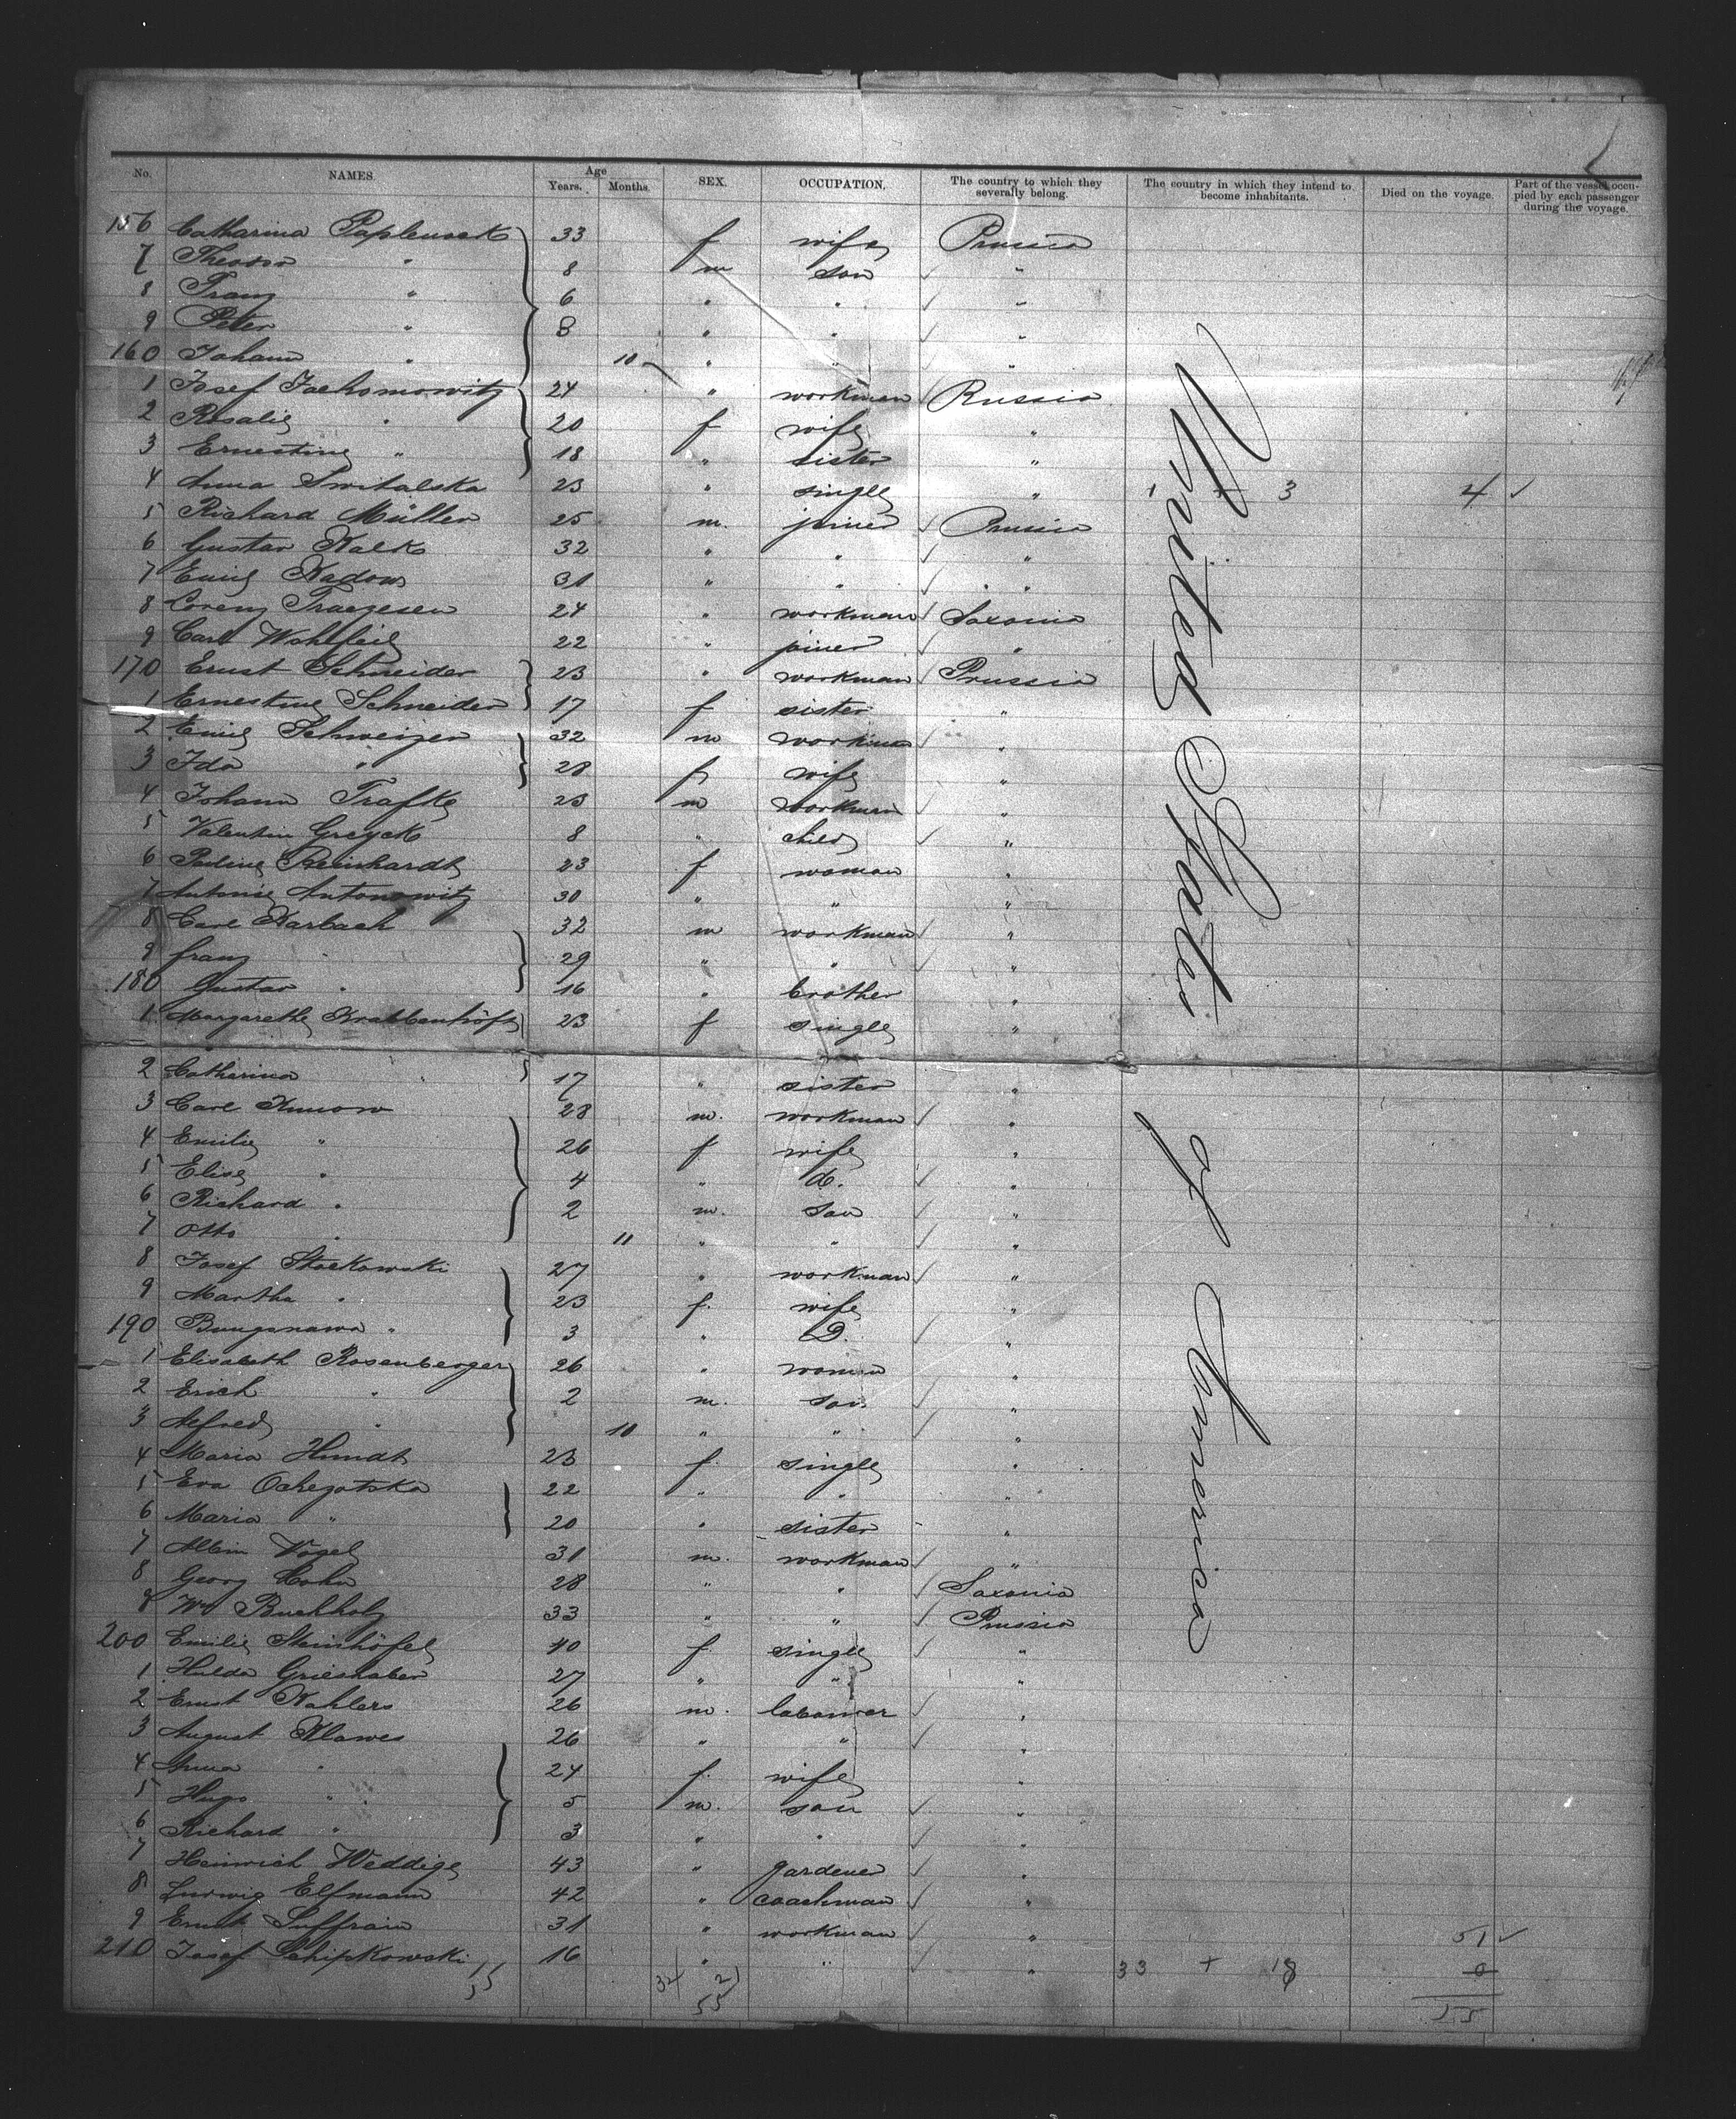 No. NAMES. Age Years. Months. SEX. OCCUPATION. The country to which they severally belong. The country in which they intend to become inhabitants. Died on the voyage. Part of the vessel occupied by each passenger during the voyage.
156 Catharina 33 f wife Prussia
7 Theodor " 8 m son ✓ "
8 Franz " 6 " " ✓ "
9 Peter " 8 " " ✓ "
160 Johann " 10 " " "
1 Josef Jachomowitz 24 " workman ✓ Russia
2 Rosalie " 20 f wife "
3 Ernestine " 18 " sister "
4 Anna Switalska 23 " single " 1 + 3 4 ✓
5 Richard Müller 25 m. joiner ✓ Prussia
6 Gustav Kalks 32 " " ✓ "
7 Emil Kadows 31 " " ✓ "
8 Lorenz 24 " workman ✓ Saxonia
9 Carl Wohlfeil 22 " joiner ✓ "
170 Ernst Schneider 23 " workman ✓ Prussia
1 Ernestine Schneider 17 f sister "
2 Emil Schweizer 32 m workman ✓ "
3 Ida " 28 f wife "
4 Johann Trafke 23 m workman ✓ "
5 Valentin 8 " child ✓ "
6 Pauline Reinhardt 23 f woman "
7 Antonie Antonowitz 30 " " "
8 Carl Karbach 32 m workman ✓ "
9 Franz " 29 " " ✓ "
180 Gustav " 16 " brother "
1 Margarethe Krabbenhöft 23 f single "
2 Catharina " 17 " sister "
3 Carl 28 m. workman ✓ "
4 Emilie " 26 f wife "
5 Elise " 4 " d. ✓ "
6 Richard " 2 m. son ✓ "
7 Otto " 11 " " ✓ "
8 Josef Stockowski 27 " workman ✓ "
9 Martha " 23 f. wife "
190 " 3 " D. ✓ "
1 Elisabeth Rosenberger 26 " woman "
2 Erich " 2 m. son ✓ "
3 Alfred " 10 " " ✓ "
4 Maria Hundt 23 f. single "
5 Eva 22 " " "
6 Maria " 20 " sister "
7 Albin Vogel 31 m. workman ✓ "
8 Georg Hohn 28 " " ✓ Saxonia
9 Wm Buchholz 33 " " ✓ Prussia
200 Emilie Steinhöfel 40 f. single ✓ "
1 Hulda Grieshaber 27 " " "
2 Ernst Kahlers 26 m. labourer ✓ "
3 August Klawes 26 " " ✓ "
4 Anna " 24 f. wife "
5 Hugo " 5 m. son ✓ "
6 Richard " 3 " " ✓ "
7 Heinrich Weddige 43 " gardener ✓ "
8 Ludwig Elfmann 42 " coachman ✓ "
9 Ernst Suffrain 31 " workman ✓ " 51 ✓
210 Josef Schipkowski 16 " " ✓ " 33 + 18 0
55 34 21 55
55
United States of America